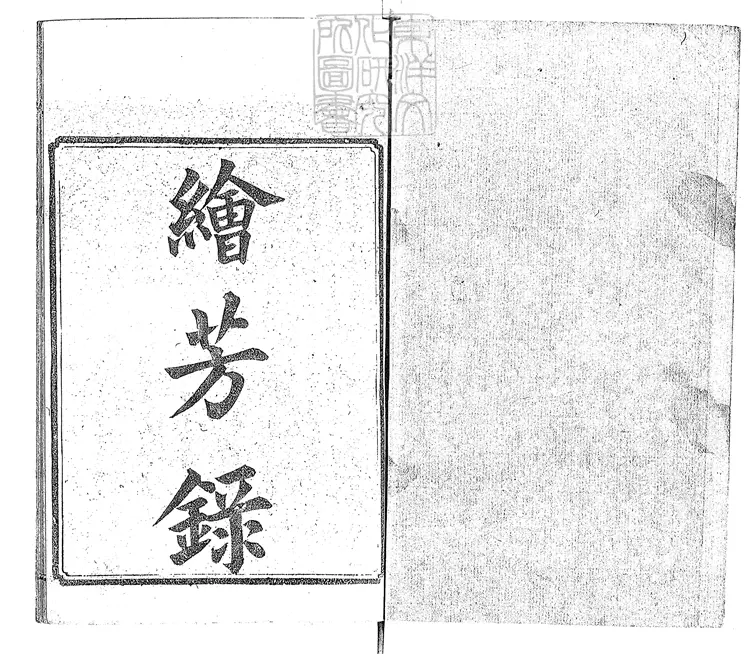 東洋文
化研究
所圖書
繪芳錄